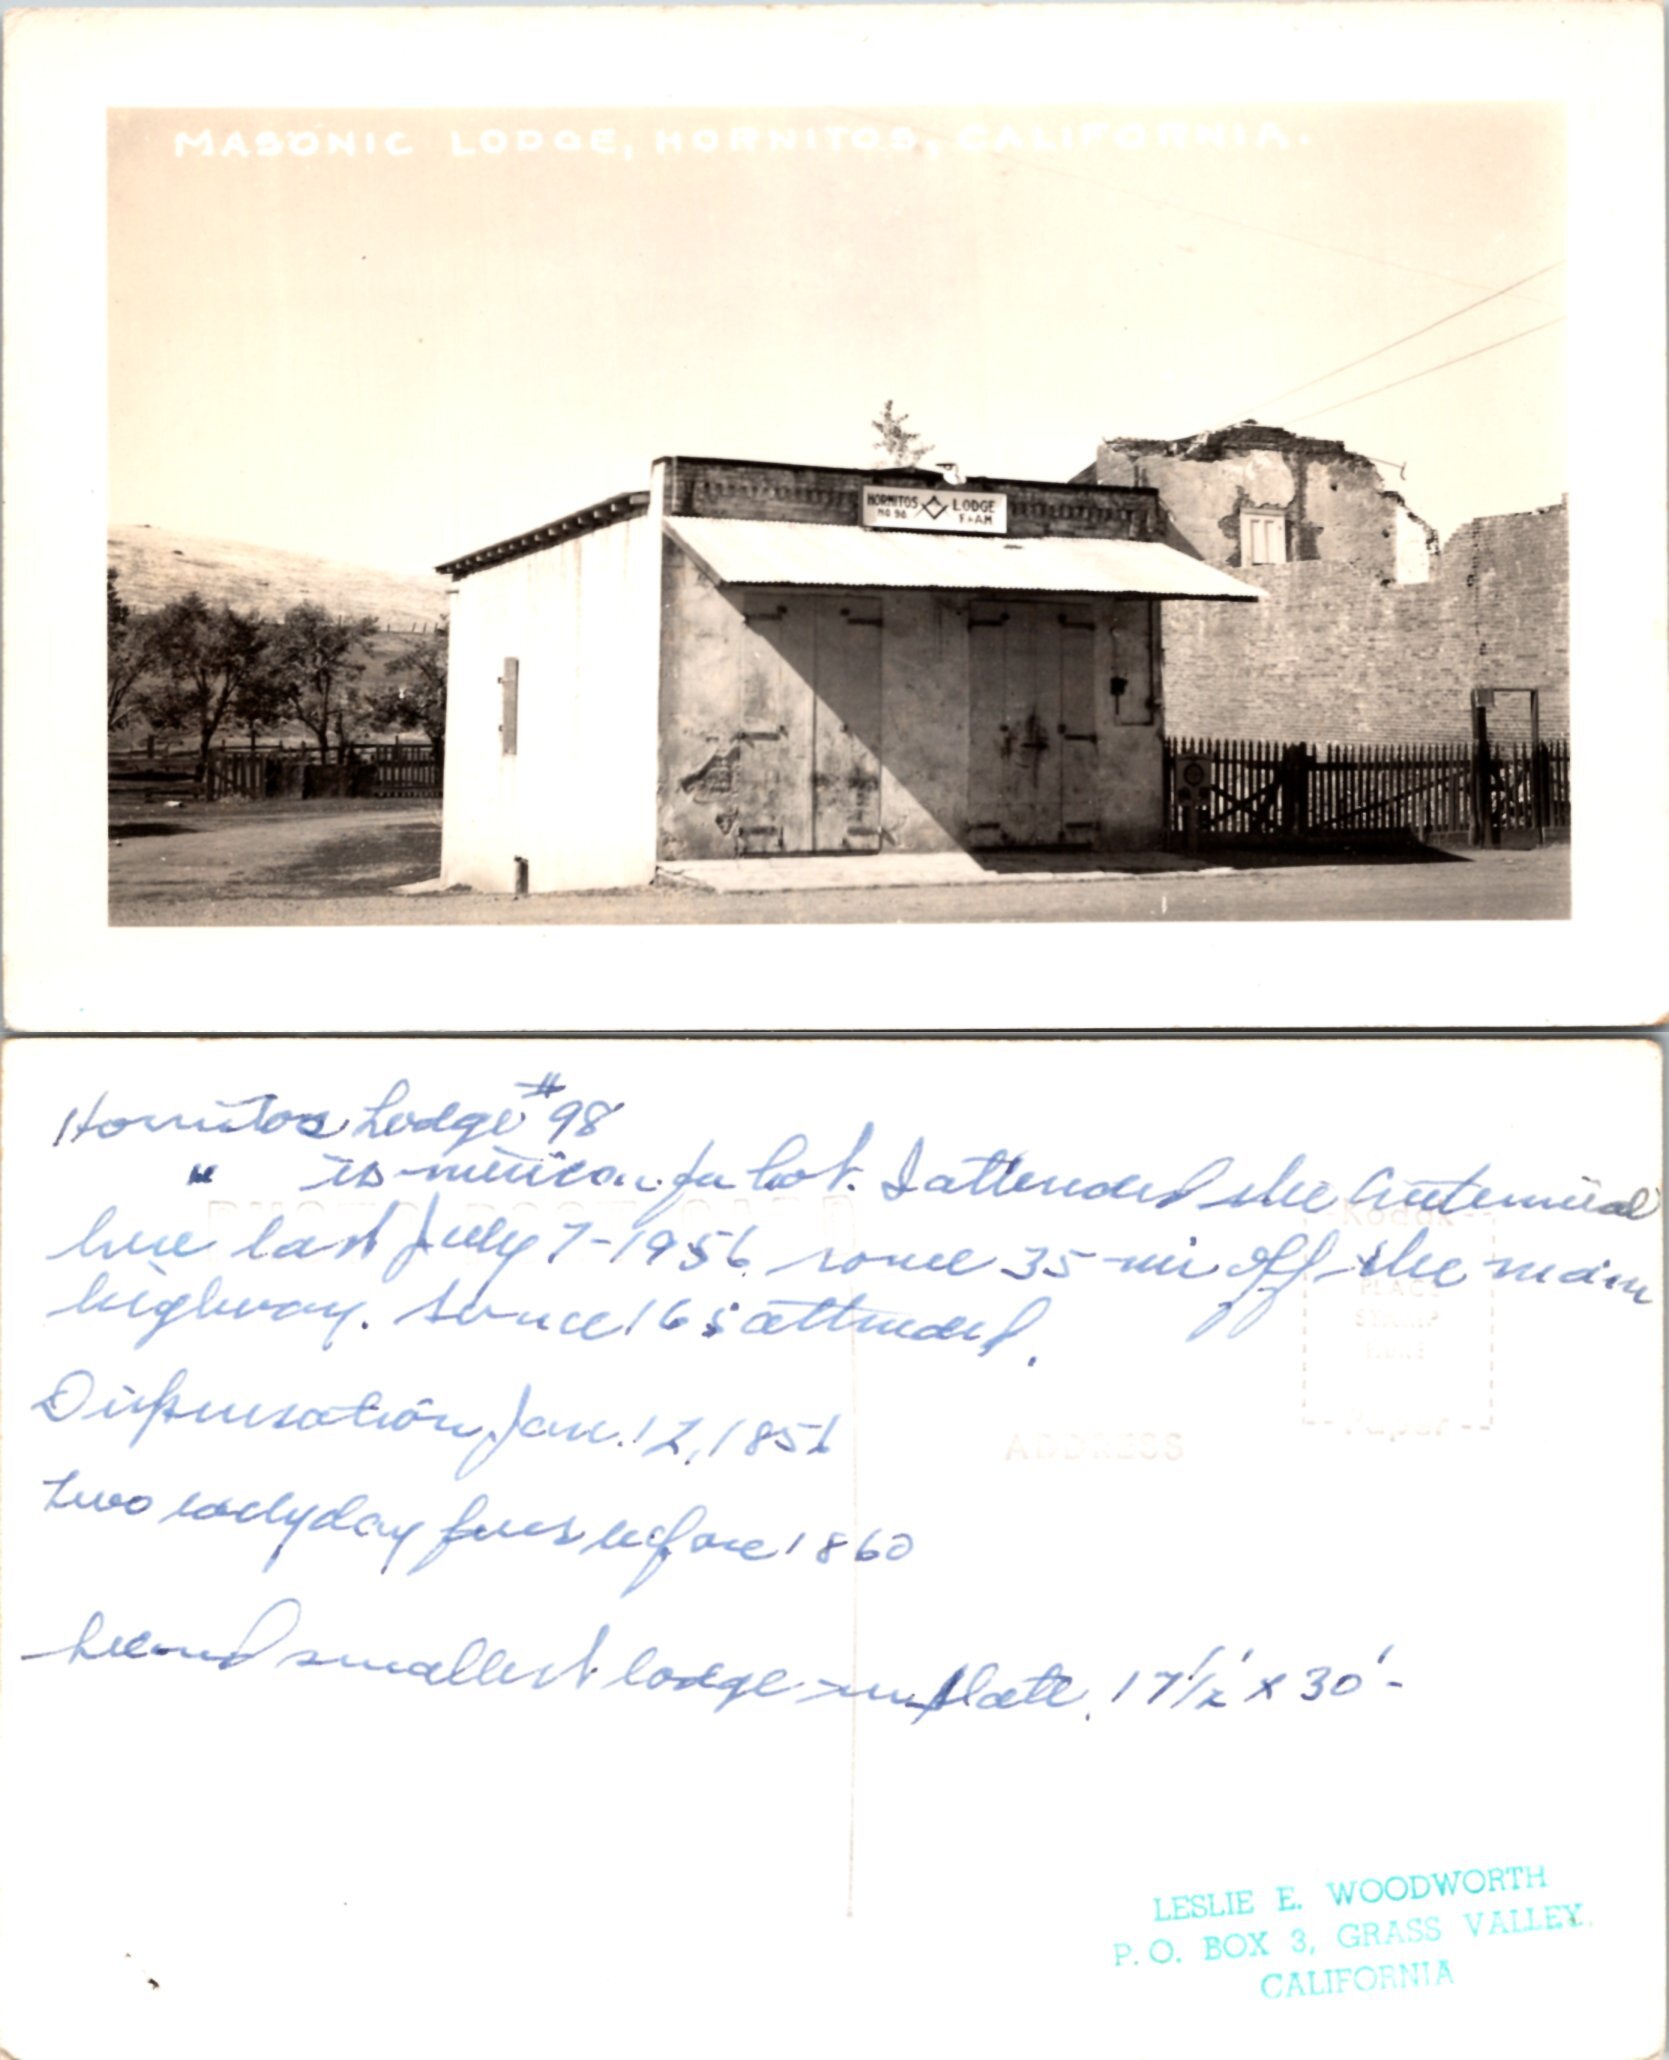 MASONIC LODGE, HORNITOS, CALIFORNIA.
HORNITOS LODGE
NO 98 F & AM
Hornitos Lodge #98
" is mexican for hot. I attended the Centennial
here last July 7-1956 some 35 mi off the main
highway. Some 165 attended.
Dispensation Jan. 12, 1856
two early day fires before 1860
Second smallest lodge in State. 17½' x 30'-
PHOTO POST CARD
Kodak
PLACE
STAMP
HERE
Paper
ADDRESS
LESLIE E. WOODWORTH
P. O. BOX 3, GRASS VALLEY,
CALIFORNIA